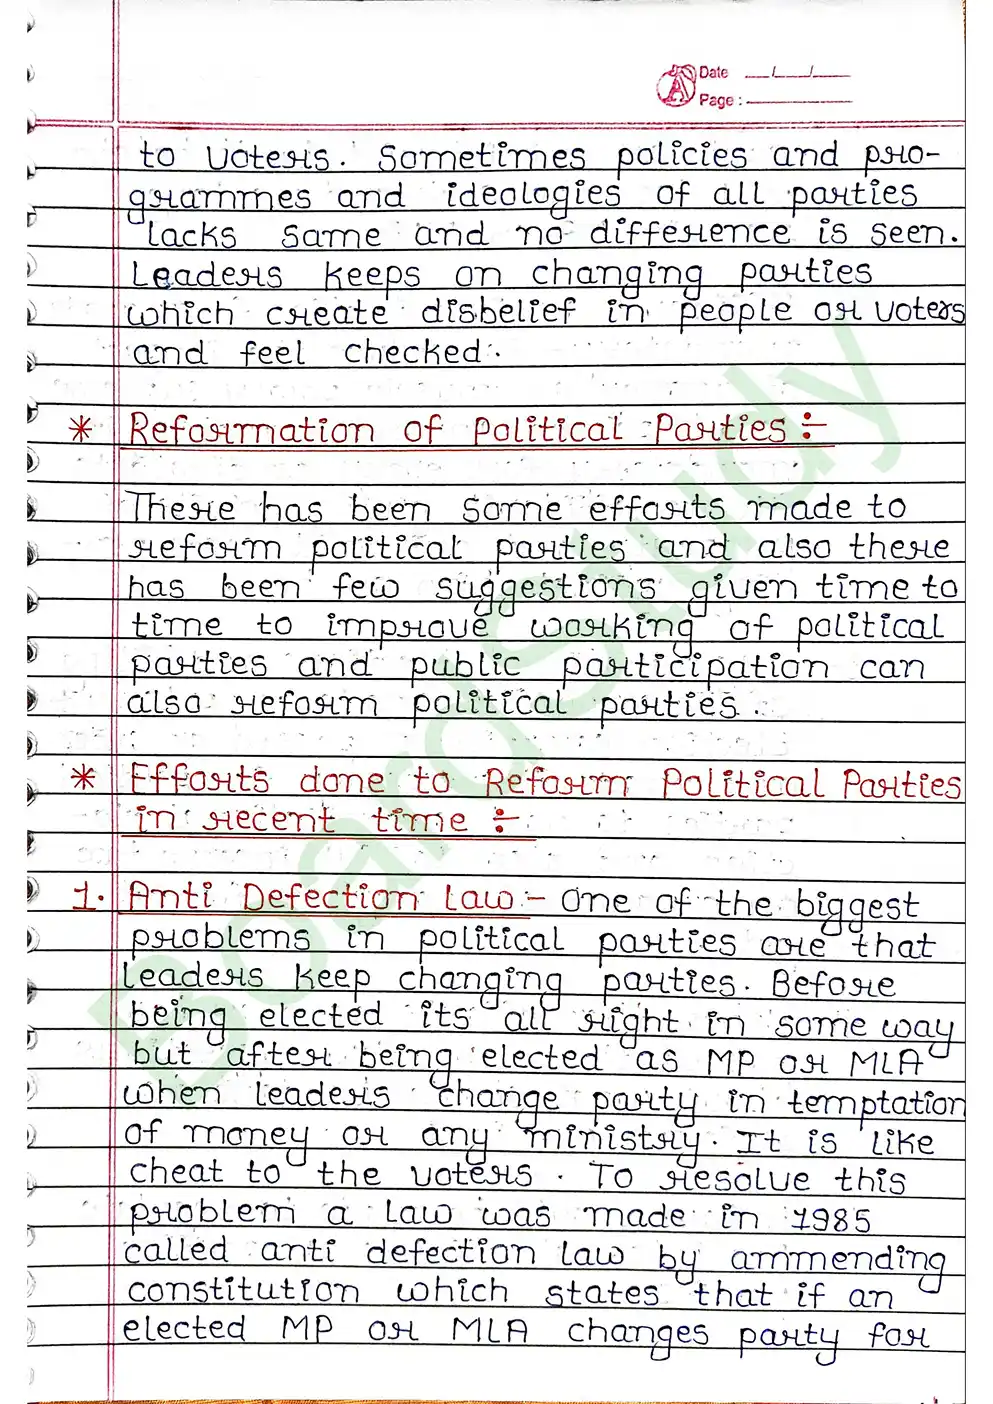 Date __/__/__
Page :
to voters. Sometimes policies and pro-
grammes and ideologies of all parties
lacks same and no difference is seen.
Leaders keeps on changing parties
which create disbelief in people or voters
and feel checked.
* Reformation of Political Parties :-
There has been some efforts made to
reform political parties and also there
has been few suggestions given time to
time to improve working of political
parties and public participation can
also reform political parties.
* Efforts done to Reform Political Parties
in recent time :-
1. Anti Defection Law - One of the biggest
problems in political parties are that
leaders keep changing parties. Before
being elected its all right in some way
but after being elected as MP or MLA
when leaders change party in temptation
of money or any ministry. It is like
cheat to the voters. To resolve this
problem a law was made in 1985
called anti defection law by ammending
constitution which states that if an
elected MP or MLA changes party for
BoardStudy